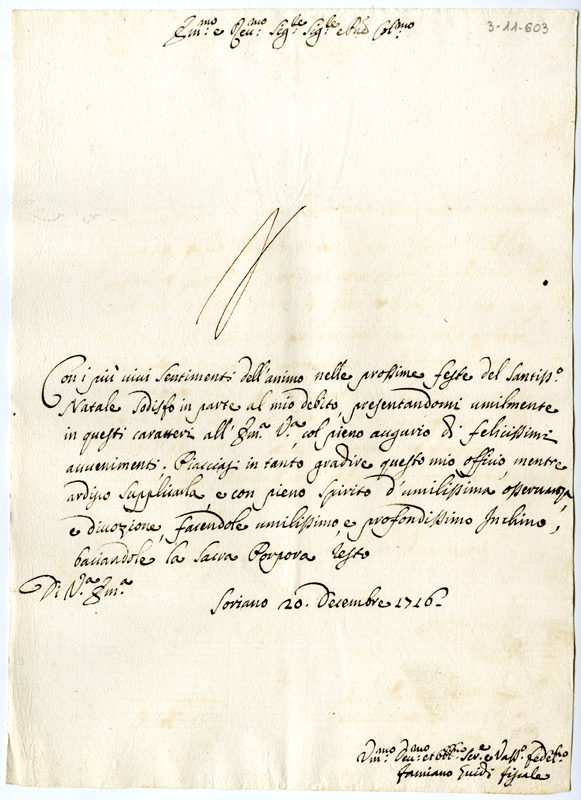 Em.mo e Reu.mo Sig.re Sig.re e Pne Col.mo
3-11-603
Con i più viui sentimenti dell'animo nelle prossime feste del Santiss.o
Natale sodisfo in parte al mio debito, presentandomi umilmente
in questi caratteri all'Em.a V.a col pieno augurio di felicissimi
auuenimenti. Piacciasi in tanto gradire questo mio officio, mentre
ardisco supplicarla, e con pieno spirito d'umilissima osseruanza,
e diuozione, facendole umilissimo, e profondissimo Inchino,
baciandole la Sacra Porpora resto
Di V.a Em.a
Soriano 20. Decembre 1716.
Um.mo Deu.mo et Obb.mo Ser.e e Vass.o fedel.mo
Famiano Guidi fiscale